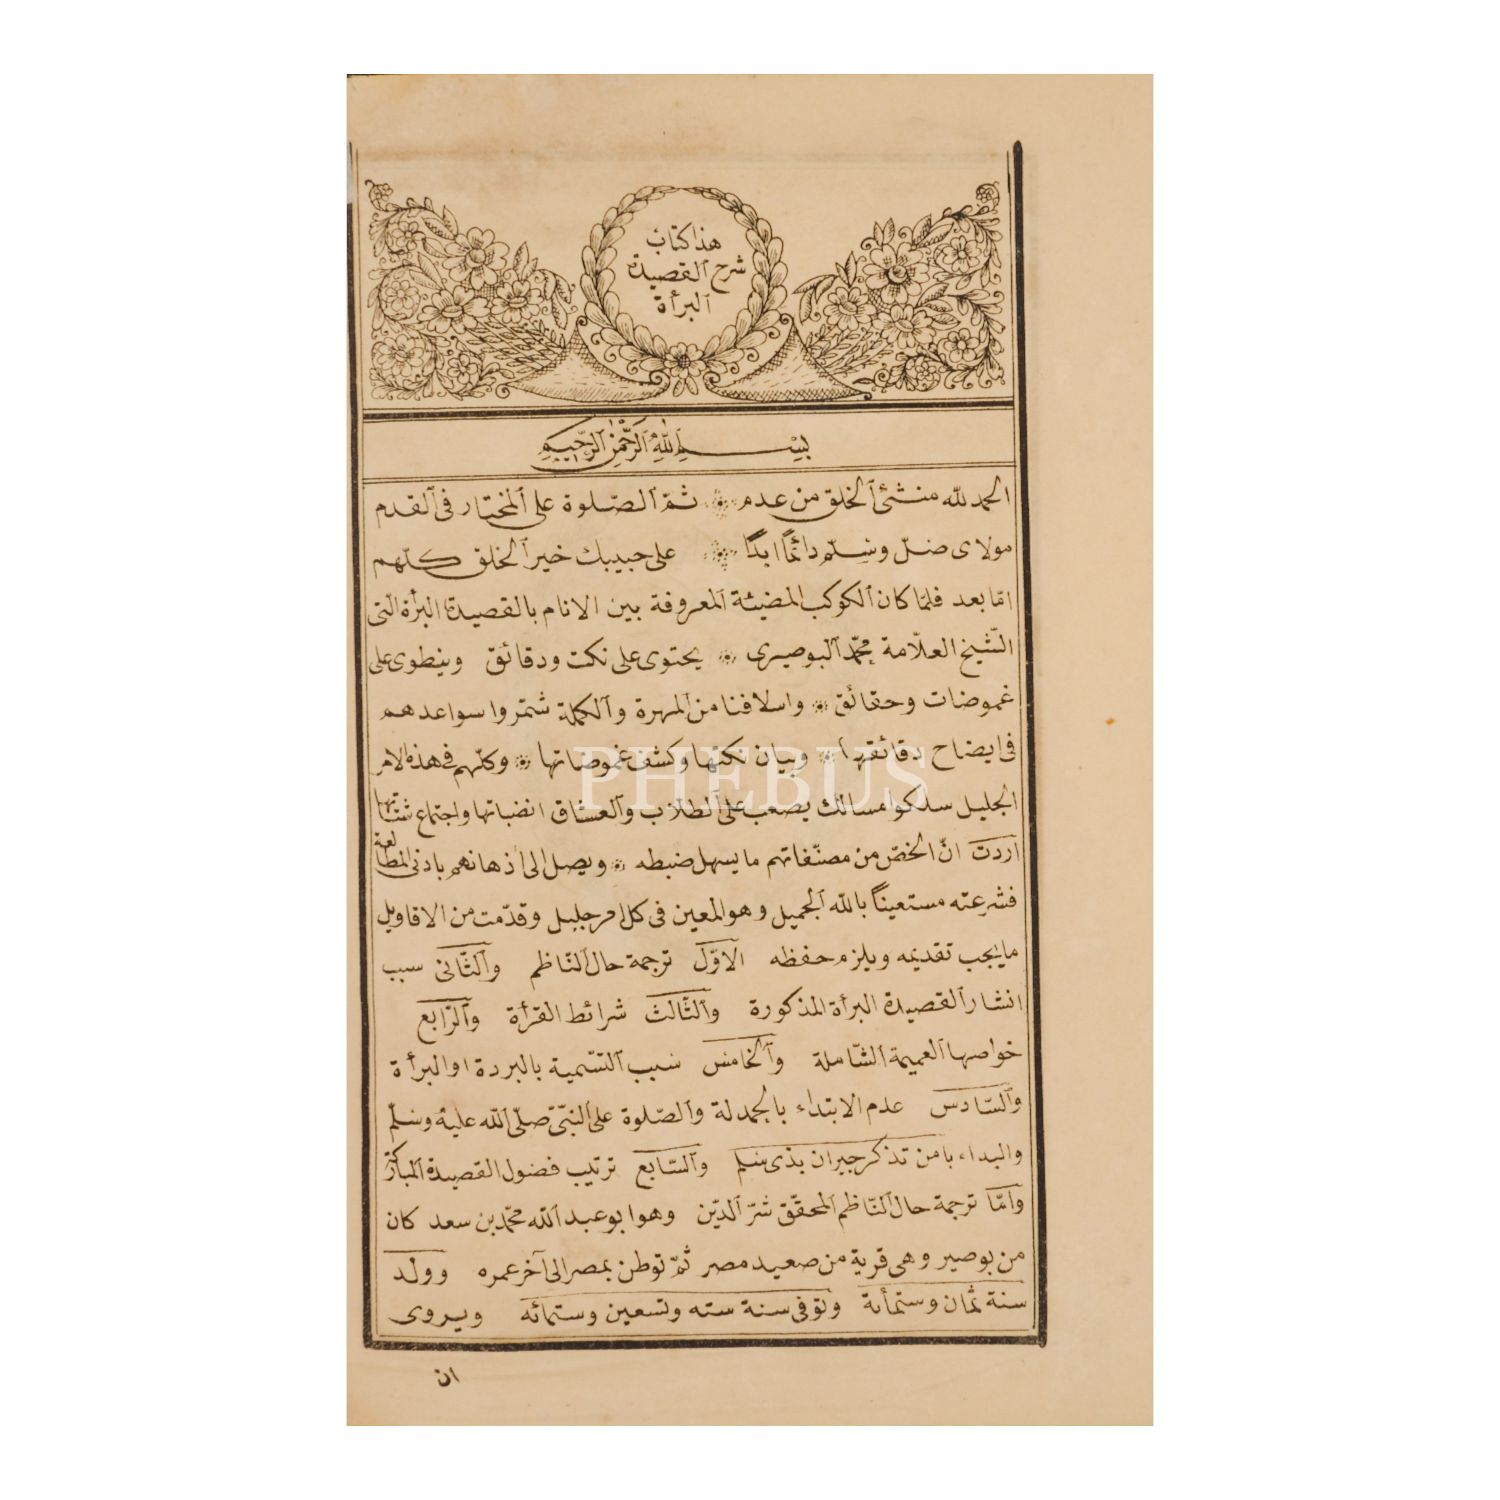 هذا كتاب
شرح القصيدة
البرأة
بسم الله الرحمن الرحيم
الحمد لله منشئ الخلق من عدم ثمّ الصّلوة على المختار فى القدم
مولاى صلّ وسلّم دائمًا ابدًا على حبيبك خير الخلق كلّهم
امّا بعد فلمّا كان الكوكب المضيئة المعروفة بين الانام بالقصيدة البرأة التى
الشّيخ العلّامة محمّد البوصيرى يحتوى على نكت ودقائق وينطوى على
غموضات وحقائق واسلافنا من المهرة والكملة شمّروا سواعدهم
فى ايضاح دقائقها وبيان نكتها وكشف غموضاتها وكلّهم فى هذه الامر
الجليل سلكوا مسالك يصعب على الطلاب والعشاق انضباتها واجتماع شتاتها
اردت انّ الخصّ من مصنّفاتهم ما يسهل ضبطه ويصل الى أذهانهم بادنى المطالعة
فشرعته مستعينًا بالله الجميل وهو المعين فى كل امر جليل وقدّمت من الاقاويل
ما يجب تقديمه ويلزم حفظه الاوّل ترجمة حال النّاظم والثّانى سبب
انشار القصيدة البرأة المذكورة والثّالث شرائط القرأة والرّابع
خواصها العميمة الشّاملة والخامس سبب التسّمية بالبردة او البرأة
والسّادس عدم الابتداء بالحمدلة والصّلوة على النبّى صلّى الله عليه وسلّم
والبداء بامن تذكر جيران بذى سلم والسّابع ترتيب فصول القصيدة المباركة
وامّا ترجمة حال النّاظم المحقّق شرّ الدّين وهو ابو عبد الله محمّد بن سعد كان
من بوصير وهى قرية من صعيد مصر ثمّ توطن بمصر الى آخر عمره وولد
سنة ثمان وستمأية وتوفى سنة سته وتسعين وستمائه ويروى
ان
PHEBUS